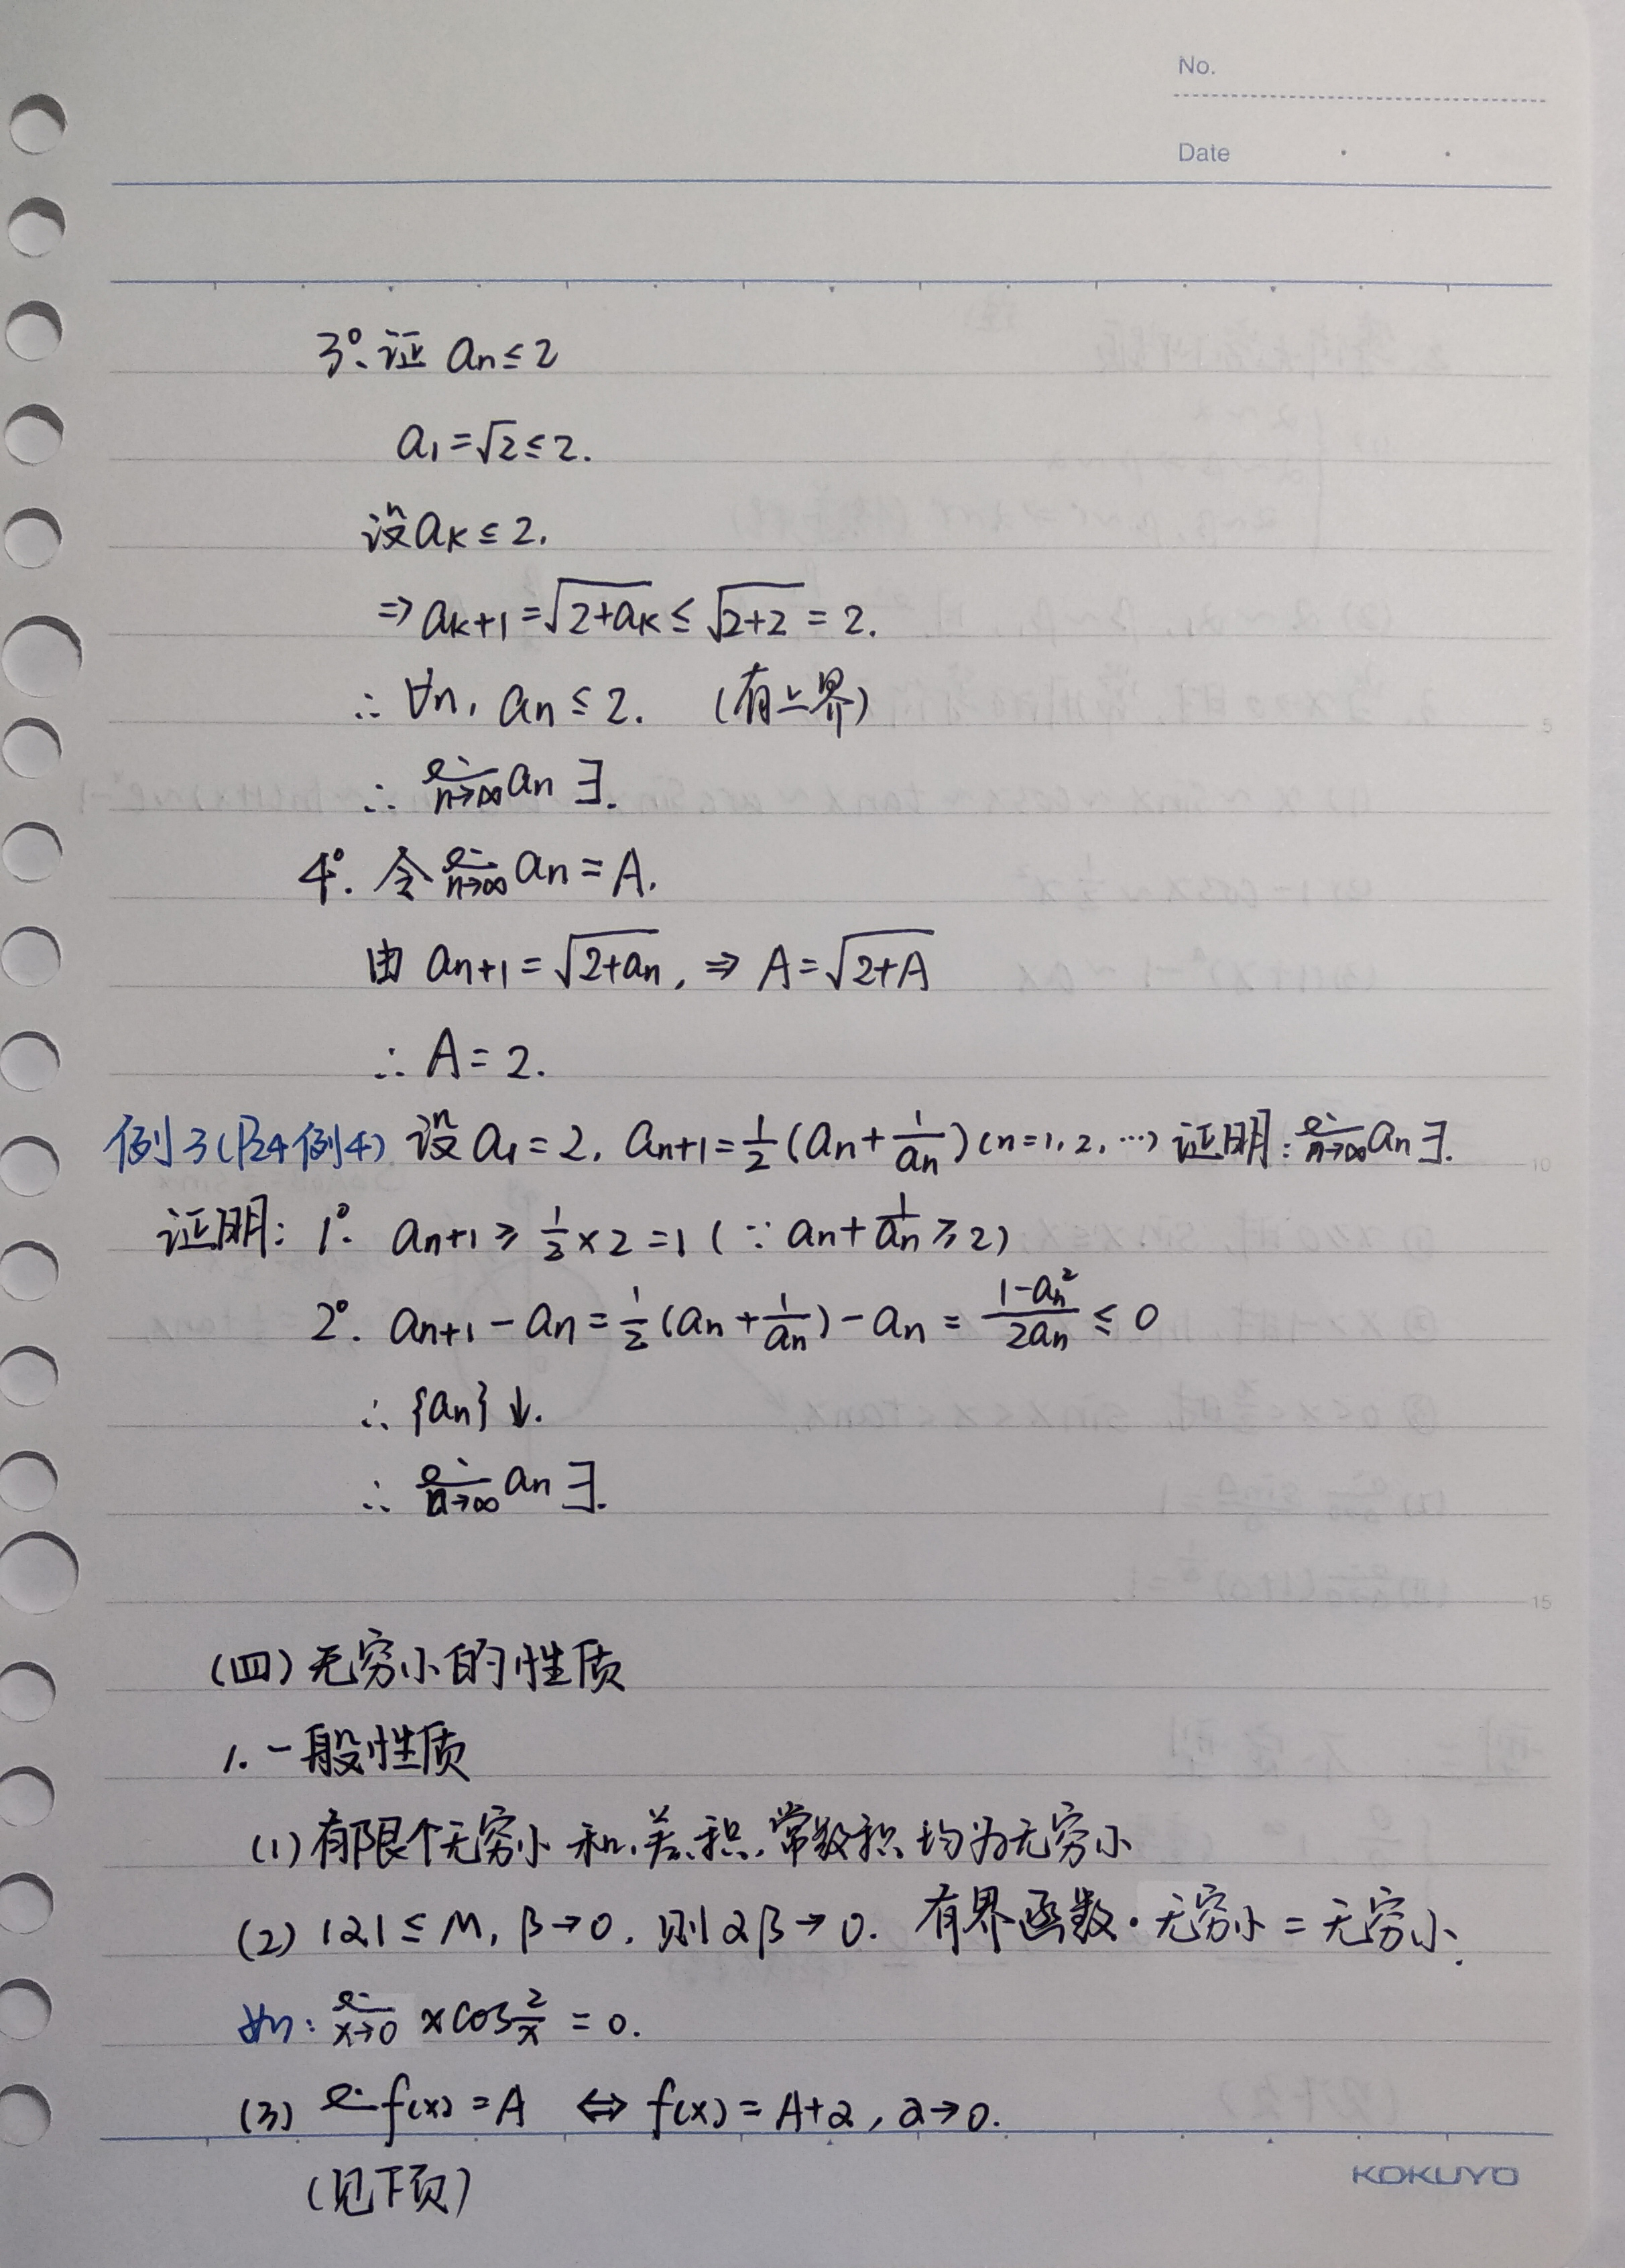 No.
Date
3°. 证 aₙ ≤ 2
a₁ = √2 ≤ 2.
设 aₖ ≤ 2.
⇒ aₖ₊₁ = √(2+aₖ) ≤ √(2+2) = 2.
∴ ∀n, aₙ ≤ 2. (有上界)
5
∴ lim n→∞ aₙ ∃.
4°. 令 lim n→∞ aₙ = A.
由 aₙ₊₁ = √(2+aₙ), ⇒ A = √(2+A)
∴ A = 2.
例3(P24例4) 设 a₁ = 2, aₙ₊₁ = 1/2 (aₙ + 1/aₙ) (n=1, 2, …) 证明: lim n→∞ aₙ ∃.
10
证明: 1°. aₙ₊₁ ≥ 1/2 × 2 = 1 (∵ aₙ + 1/aₙ ≥ 2)
2°. aₙ₊₁ - aₙ = 1/2 (aₙ + 1/aₙ) - aₙ = (1-aₙ²)/(2aₙ) ≤ 0
∴ {aₙ} ↓.
∴ lim n→∞ aₙ ∃.
15
(四) 无穷小的性质
1. 一般性质
(1) 有限个无穷小 和、差、积、常数积 均为无穷小
(2) |α| ≤ M, β→0, 则 αβ→0. 有界函数·无穷小 = 无穷小.
如: lim x→0 x cos 2/x = 0.
(3) lim f(x) = A ⇔ f(x) = A+α, α→0.
(见下页)
KOKUYO